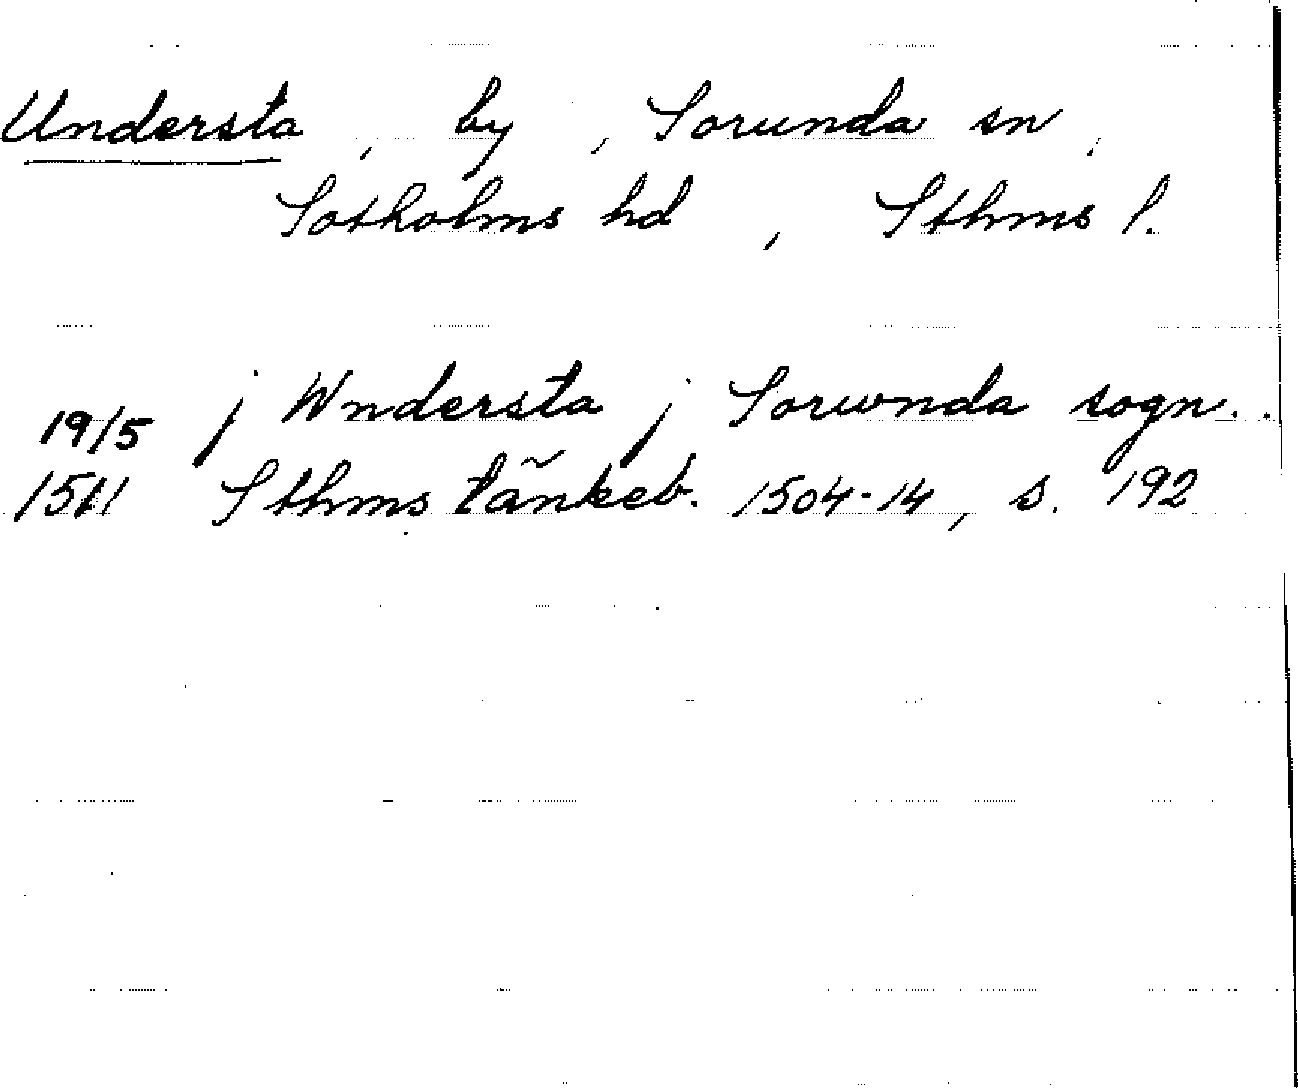 Understa, by, Sorunda sn,
Sotholms hd, Sthms l.
19/5 j Wndersta j Sorwnda sogn..
1511 Sthms tänkeb. 1504-14, s. 192